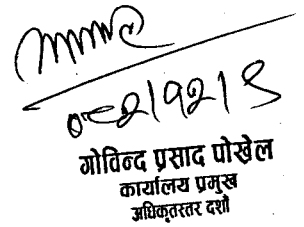 ०८२।१२।९
गोविन्द प्रसाद पोखेल
कार्यालय प्रमुख
अधिकृतस्तर दशौं